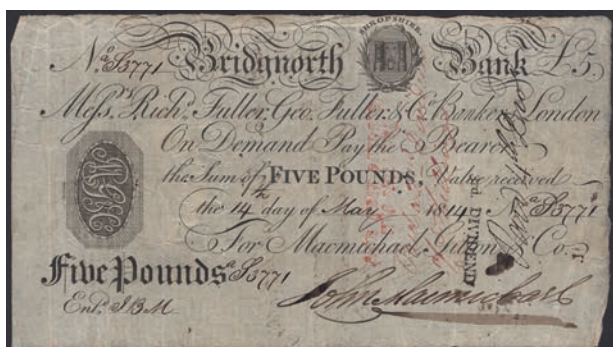 SHROPSHIRE.
No. S3771 Bridgnorth Bank £5
Messrs. Richd. Fuller, Geo. Fuller & Co. Bankers London
On Demand Pay the Bearer
the Sum of FIVE POUNDS, Value received
the 14th day of May 1814 No. S3771
For Macmichael, Gitton & Co.
Five Pounds S3771
Entd. J B M
John Macmichael
DIVIDEND